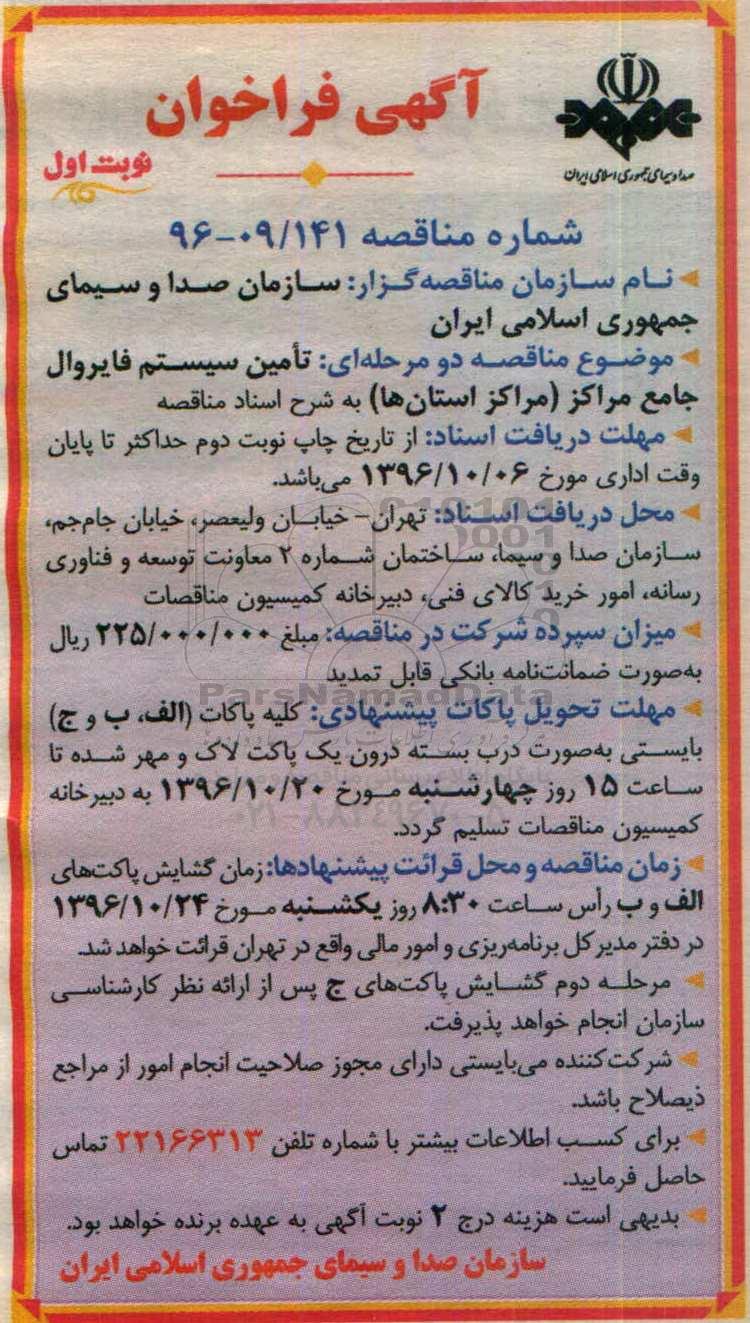 صدا و سیمای جمهوری اسلامی ایران
آگهی فراخوان
نوبت اول
شماره مناقصه ۹۶-۰۹/۱۴۱
نام سازمان مناقصه‌گزار: سازمان صدا و سیمای
جمهوری اسلامی ایران
موضوع مناقصه دو مرحله‌ای: تأمین سیستم فایروال
جامع مراکز (مراکز استان‌ها) به شرح اسناد مناقصه
مهلت دریافت اسناد: از تاریخ چاپ نوبت دوم حداکثر تا پایان
وقت اداری مورخ ۱۳۹۶/۱۰/۰۶ می‌باشد.
محل دریافت اسناد: تهران- خیابان ولیعصر، خیابان جام‌جم،
سازمان صدا و سیما، ساختمان شماره ۲ معاونت توسعه و فناوری
رسانه، امور خرید کالای فنی، دبیرخانه کمیسیون مناقصات
میزان سپرده شرکت در مناقصه: مبلغ ۲۲۵/۰۰۰/۰۰۰ ریال
به‌صورت ضمانت‌نامه بانکی قابل تمدید
ParsNamadData
مهلت تحویل پاکات پیشنهادی: کلیه پاکات (الف، ب و ج)
بایستی به‌صورت درب بسته درون یک پاکت لاک و مهر شده تا
ساعت ۱۵ روز چهارشنبه مورخ ۱۳۹۶/۱۰/۲۰ به دبیرخانه
کمیسیون مناقصات تسلیم گردد.
زمان مناقصه و محل قرائت پیشنهادها: زمان گشایش پاکت‌های
الف و ب رأس ساعت ۸:۳۰ روز یکشنبه مورخ ۱۳۹۶/۱۰/۲۴
در دفتر مدیر کل برنامه‌ریزی و امور مالی واقع در تهران قرائت خواهد شد.
مرحله دوم گشایش پاکت‌های ج پس از ارائه نظر کارشناسی
سازمان انجام خواهد پذیرفت.
شرکت‌کننده می‌بایستی دارای مجوز صلاحیت انجام امور از مراجع
ذیصلاح باشد.
برای کسب اطلاعات بیشتر با شماره تلفن ۲۲۱۶۶۳۱۳ تماس
حاصل فرمایید.
بدیهی است هزینه درج ۲ نوبت آگهی به عهده برنده خواهد بود.
سازمان صدا و سیمای جمهوری اسلامی ایران